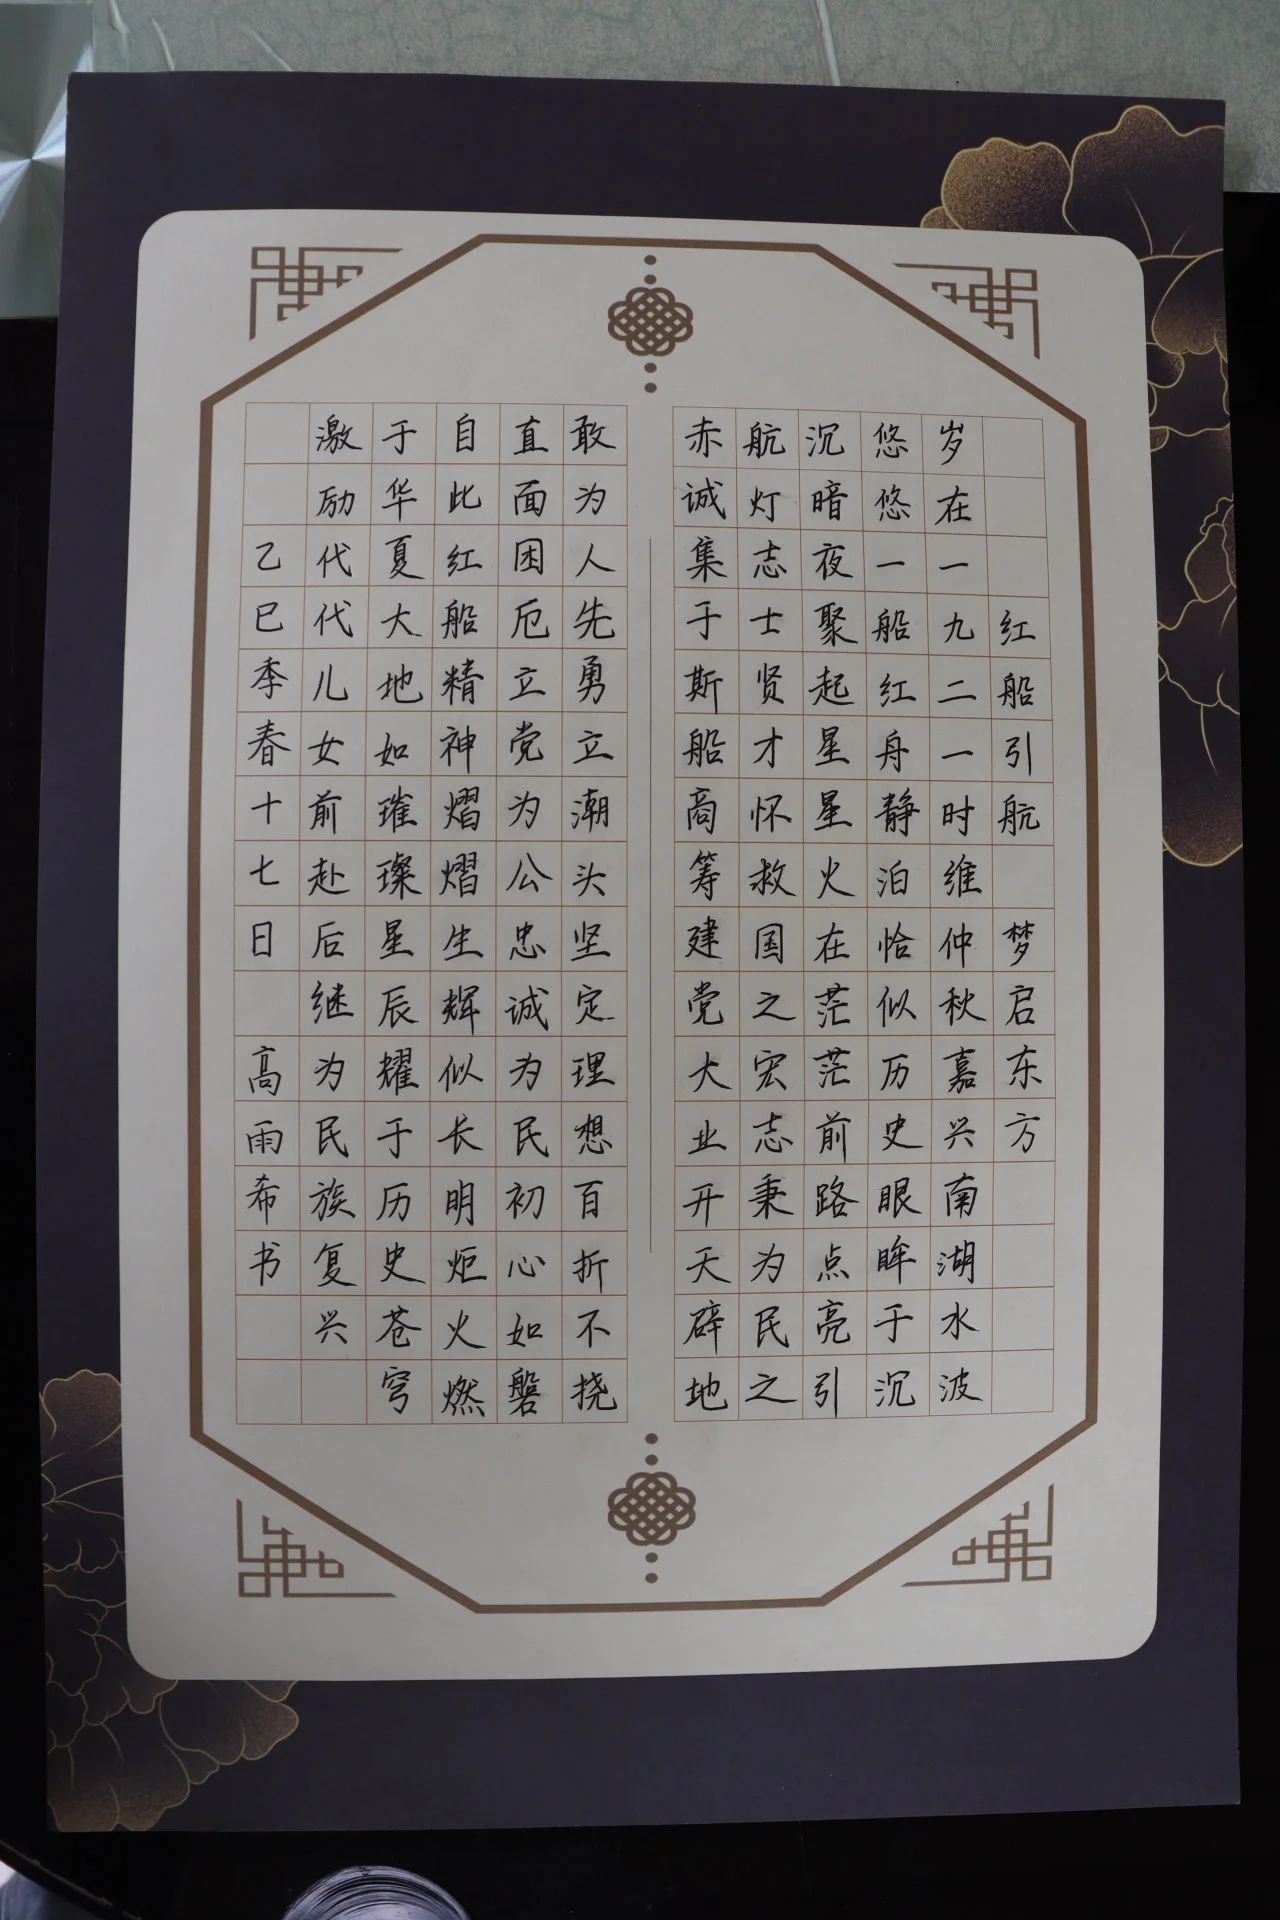 红船引航 梦启东方
岁在一九二一时维仲秋嘉兴南湖水波
悠悠一船红舟静泊恰似历史眼眸于沉
沉暗夜聚起星星火在茫茫前路点亮引
航灯志士贤才怀救国之宏志秉为民之
赤诚集于斯船商筹建党大业开天辟地
敢为人先勇立潮头坚定理想百折不挠
直面困厄立党为公忠诚为民初心如磐
自此红船精神熠熠生辉似长明炬火燃
于华夏大地如璀璨星辰耀于历史苍穹
激励代代儿女前赴后继为民族复兴
乙巳季春十七日 高雨希书